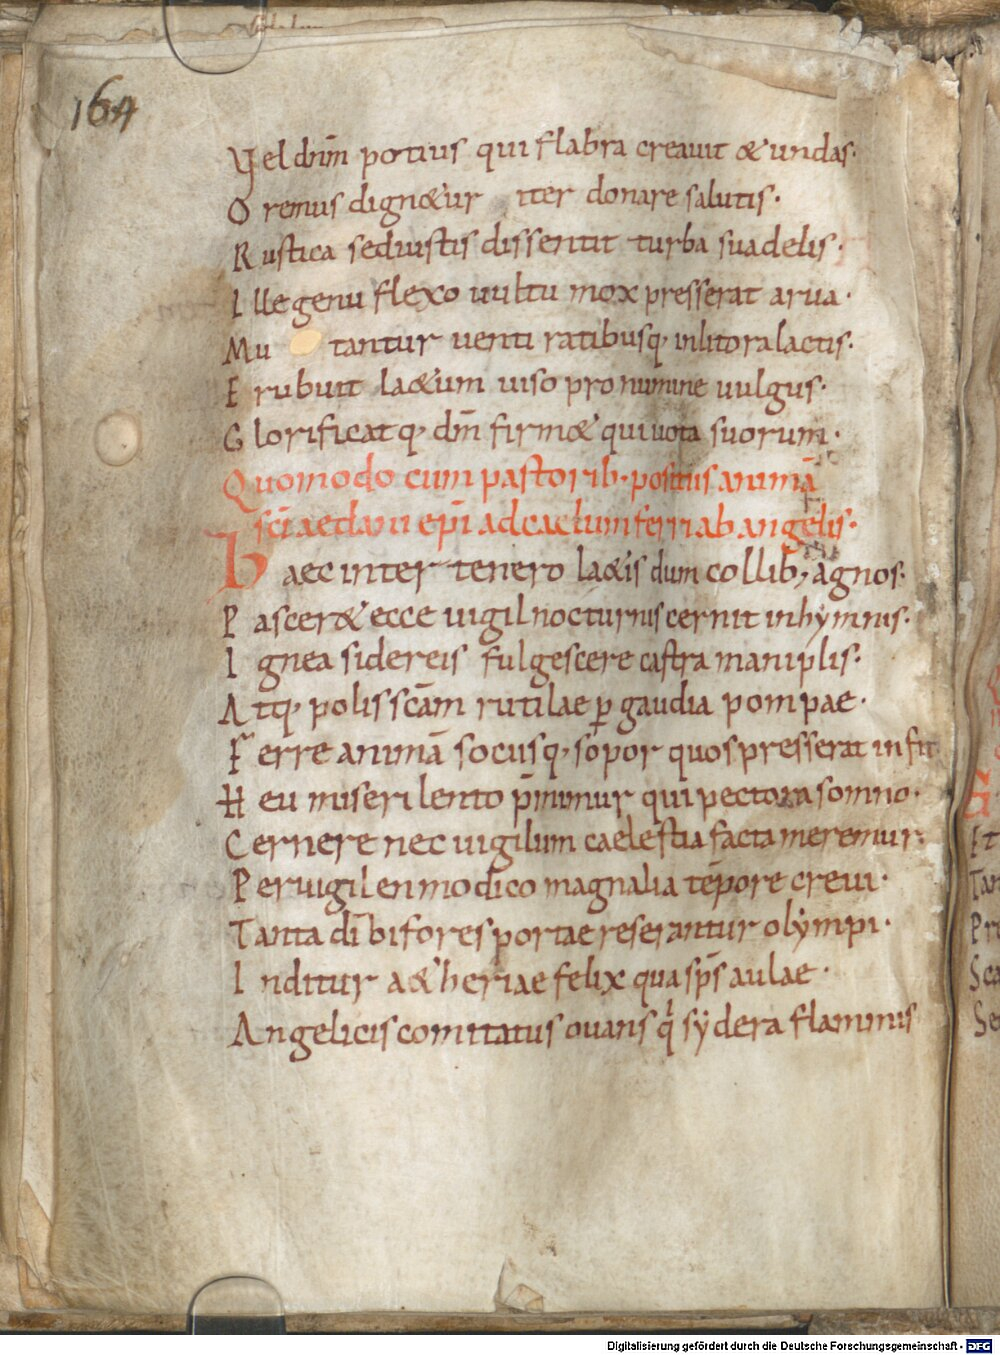 164
Vel dnm̄ potius qui flabra creauit & undas·
Oremus dign&ur iter donare salutis·
Rustica sed uistis dissentit turba suadelis·
Ille genu flexo uultu mox presserat arua·
Mutantur uenti ratibusq, inlitora lactis·
Erubuit la&um uiso pro numine uulgus·
Glorificatq, dm̄ firm& qui uota suorum·
Quomodo cum pastorib· positus animā
sc̄i aedani ep̄i ad caelum ferri ab angelis·
Haec inter tenero la&is dum collib; agnos·
Pascer& ecce uigil nocturnis cernit inhymnis·
Ignea sidereis fulgescere castra maniplis·
Atq, polis sc̄am rutilae ꝑ gaudia pompae·
Ferre animā socusq, sopor quos presserat infit
Heu miseri lento p̄mimur qui pectora somno·
Cernere nec uigilum caelestia facta meremur·
Peruigil en modico magnalia tēpore creui·
Tanta dī bifores portae reserantur olympi·
Inditur a&heriae felix qua sp̄s aulae·
Angelicis comitatus ouans q̇ sydera flammis
Digitalisierung gefördert durch die Deutsche Forschungsgemeinschaft - DFG